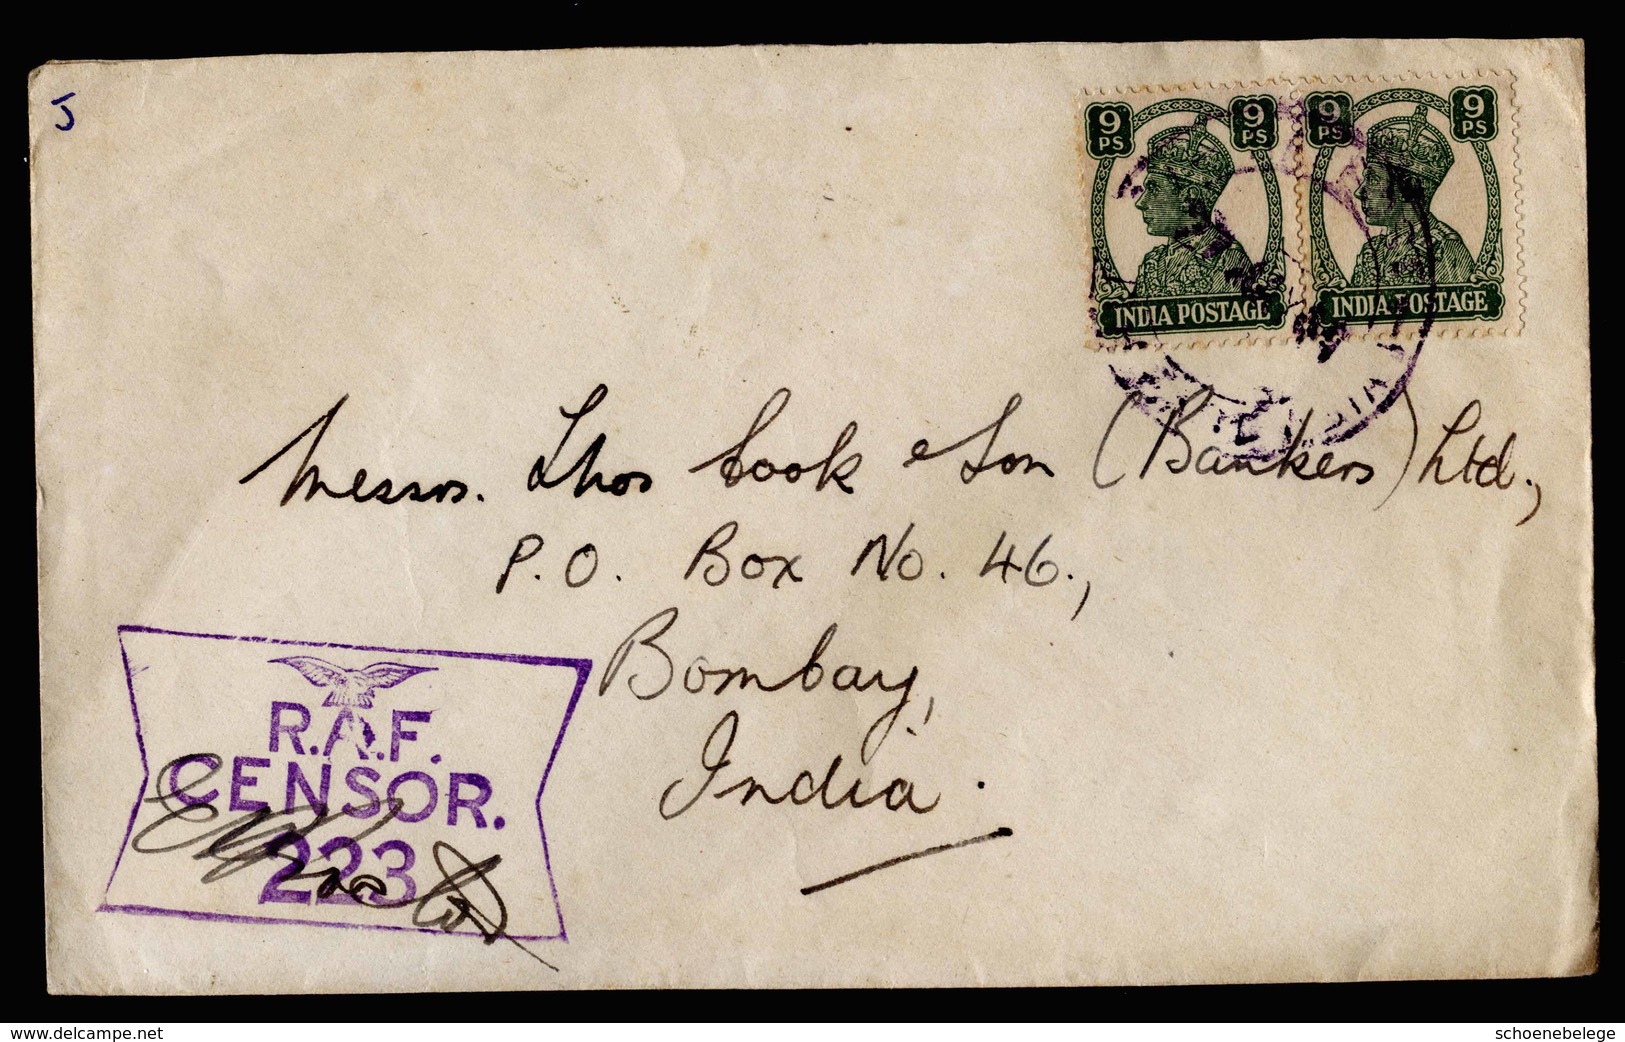 J
9 PS 9 PS 9 PS 9 PS
INDIA POSTAGE INDIA POSTAGE
Messrs. Thos Cook & Son (Bankers) Ltd.,
P.O. Box No. 46.,
Bombay,
India.
R.A.F.
CENSOR.
223
www.delcampe.net
schoenebelege